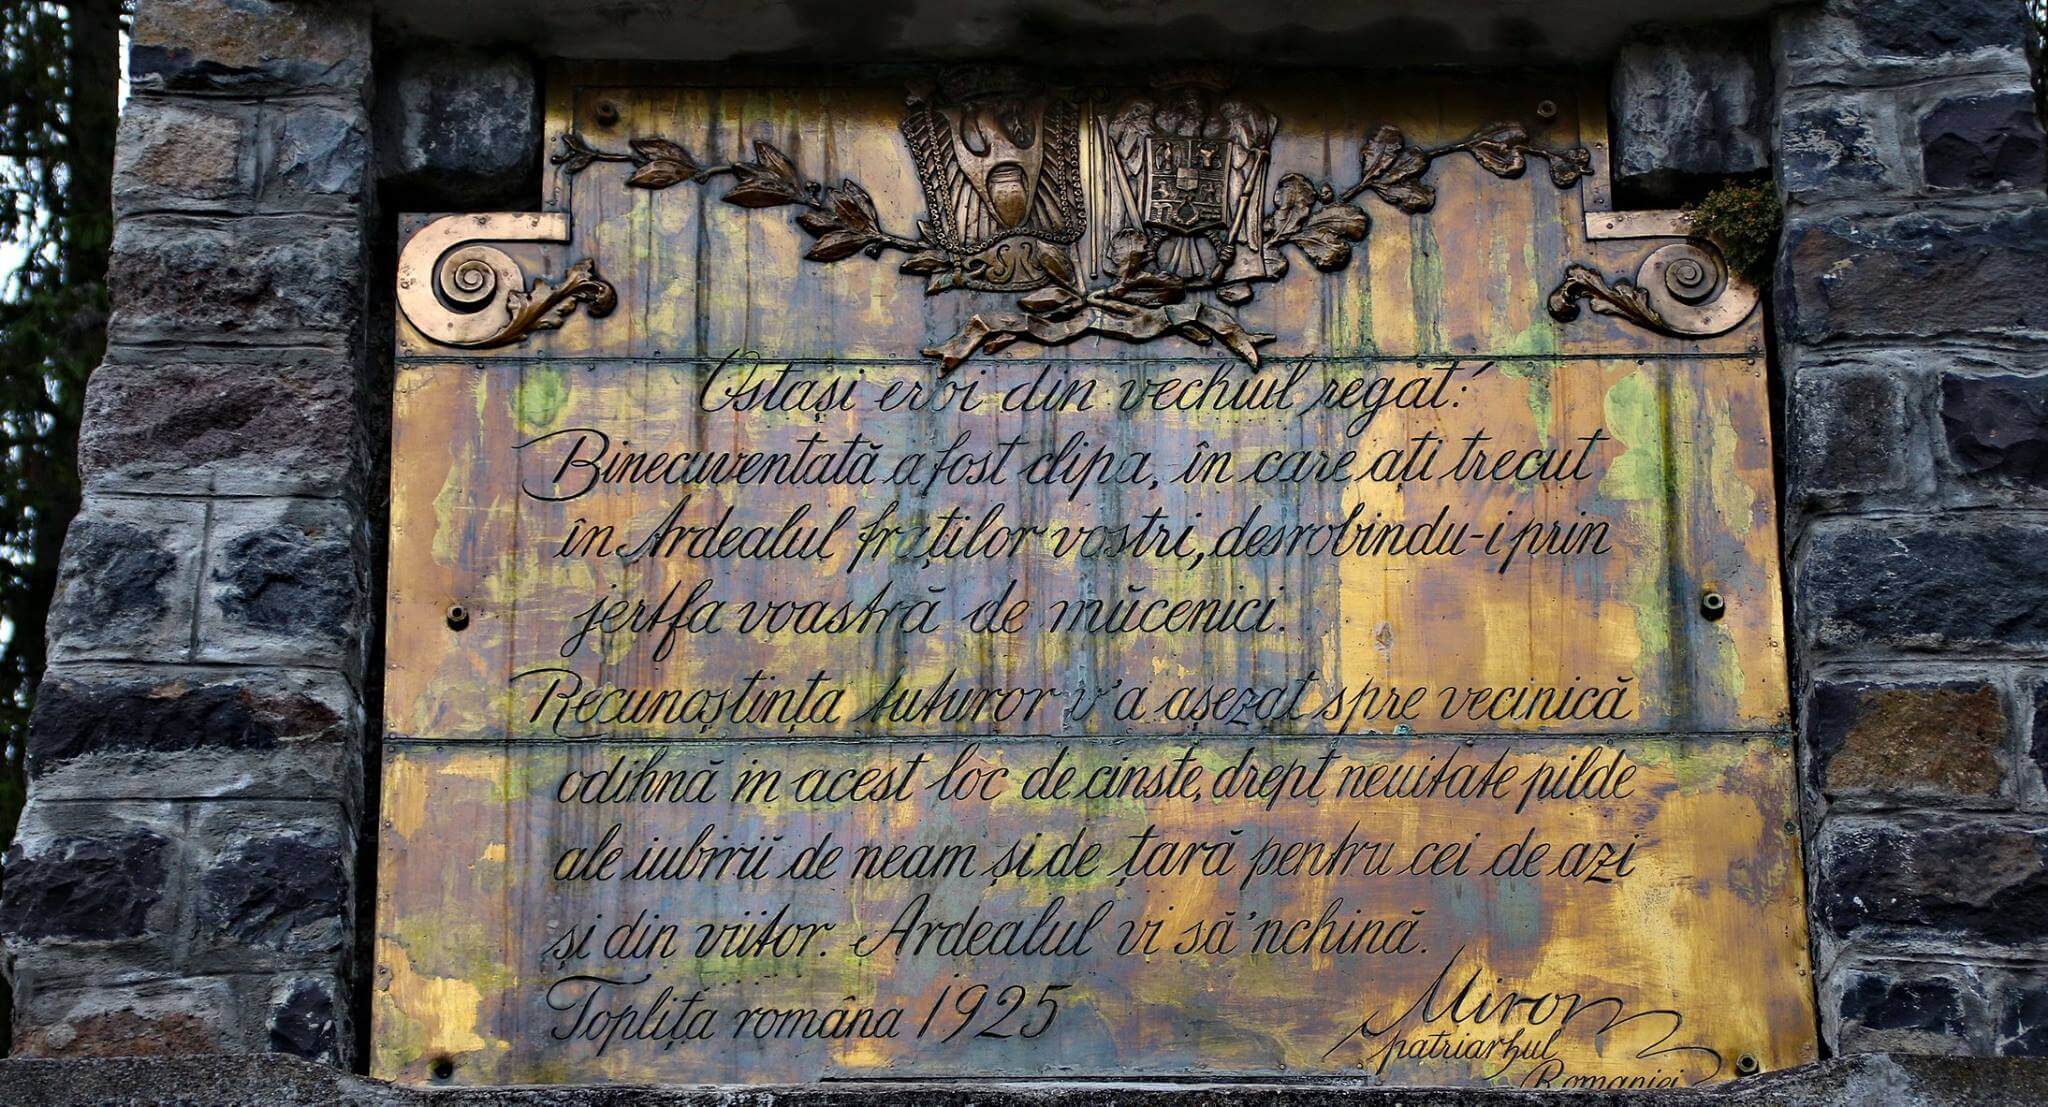 Ostași eroi din vechiul regat!
Binecuventată a fost clipa, în care ați trecut
în Ardealul fraților voștri, desrobindu-i prin
jertfa voastră de mucenici.
Recunoștința tuturor v'a așezat spre vecinică
odihnă in acest loc de cinste, drept neuitate pilde
ale iubirii de neam și de țară pentru cei de azi
și din viitor. Ardealul vi să 'nchină.
Toplița română 1925
Miron
patriarhul
Romaniei